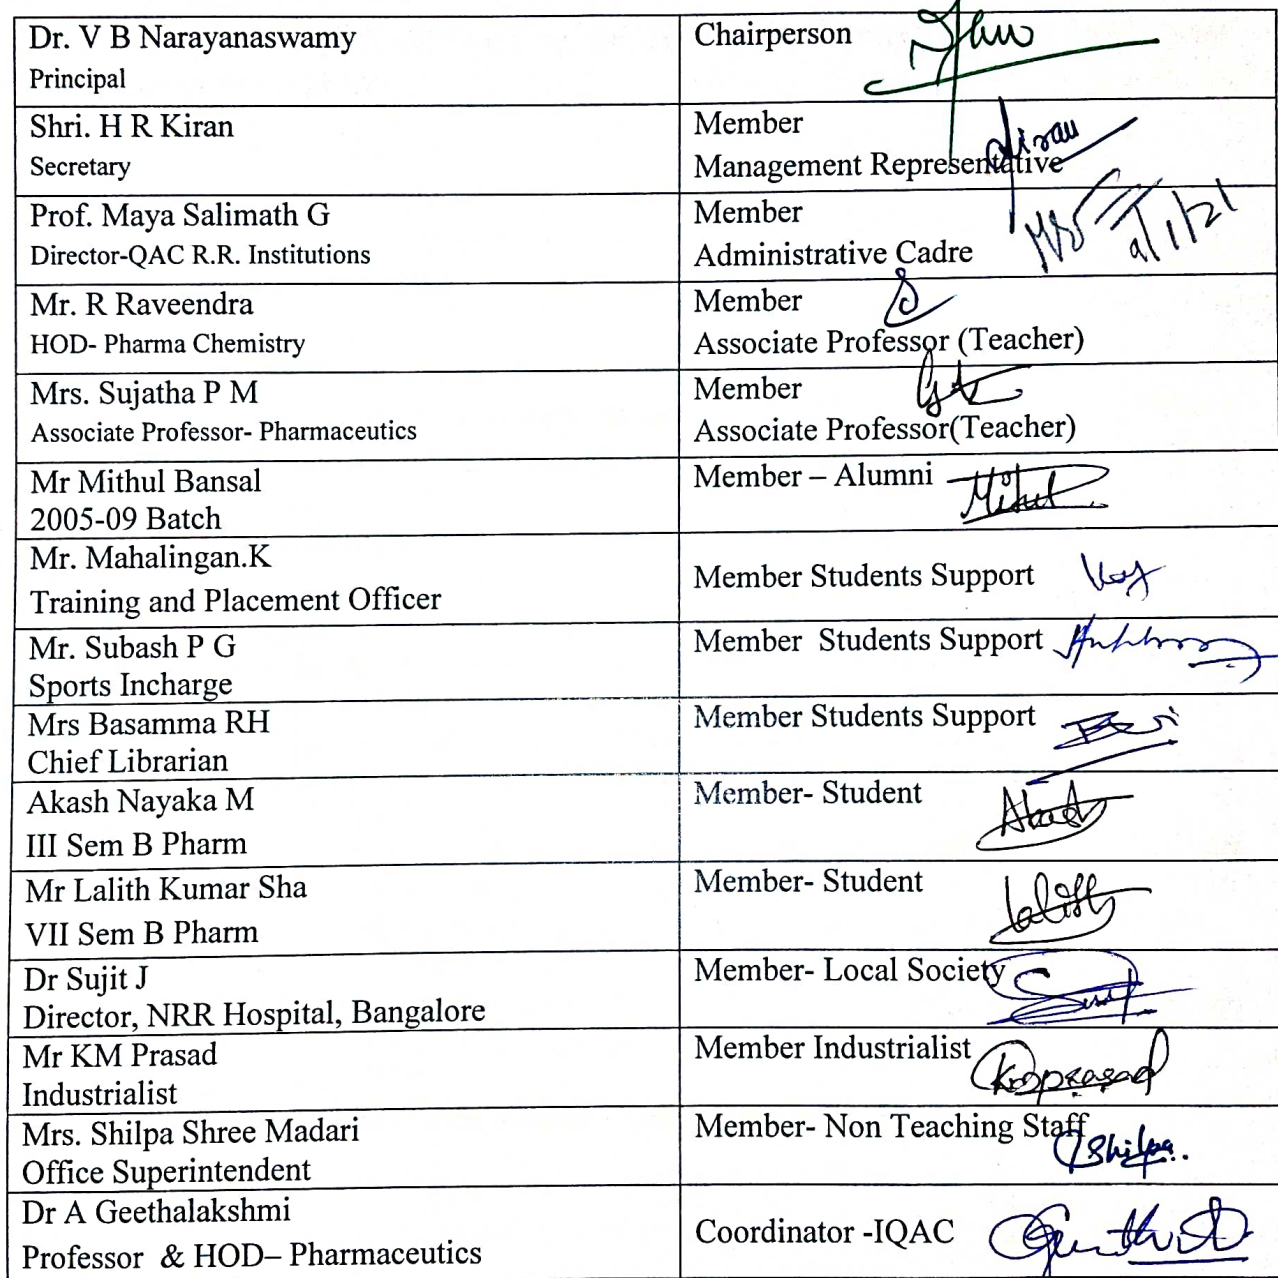 Dr. V B Narayanaswamy
Principal
Chairperson
Shri. H R Kiran
Secretary
Member
Management Representative
Kiran
Prof. Maya Salimath G
Director-QAC R.R. Institutions
Member
Administrative Cadre
Mr. R Raveendra
HOD- Pharma Chemistry
Member
Associate Professor (Teacher)
Mrs. Sujatha P M
Associate Professor- Pharmaceutics
Member
Associate Professor(Teacher)
Mr Mithul Bansal
2005-09 Batch
Member – Alumni
Mr. Mahalingan.K
Training and Placement Officer
Member Students Support
Mr. Subash P G
Sports Incharge
Member Students Support
Mrs Basamma RH
Chief Librarian
Member Students Support
Akash Nayaka M
III Sem B Pharm
Member- Student
Mr Lalith Kumar Sha
VII Sem B Pharm
Member- Student
Lalith
Dr Sujit J
Director, NRR Hospital, Bangalore
Member- Local Society
Mr KM Prasad
Industrialist
Member Industrialist
Kmprasad
Mrs. Shilpa Shree Madari
Office Superintendent
Member- Non Teaching Staff
Shilpa.
Dr A Geethalakshmi
Professor & HOD– Pharmaceutics
Coordinator -IQAC